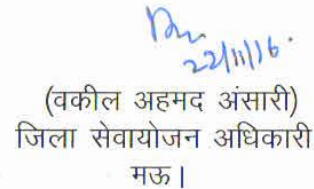 22/11/16.
(वकील अहमद अंसारी)
जिला सेवायोजन अधिकारी
मऊ।